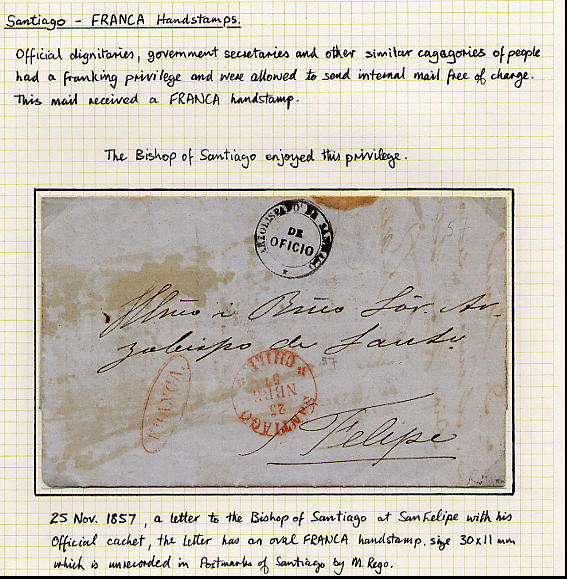 Santiago - FRANCA Handstamps.
Official dignitaries, government secretaries and other similar cagagories of people
had a franking privilege and were allowed to send internal mail free of charge.
This mail received a FRANCA handstamp.
The Bishop of Santiago enjoyed this privilege.
ARZOBISPADO DE SANTIAGO
DE
OFICIO
Illmo i Rmo Sór. Ar-
zobispo de Santo.
CHILE
57
NBRE
25
SANTIAGO
FRANCA.
S. Felipe
25 Nov. 1857, a letter to the Bishop of Santiago at San Felipe with his
Official cachet, the letter has an oval FRANCA handstamp, size 30x11 mm
which is unrecorded in Postmarks of Santiago by M. Rego.